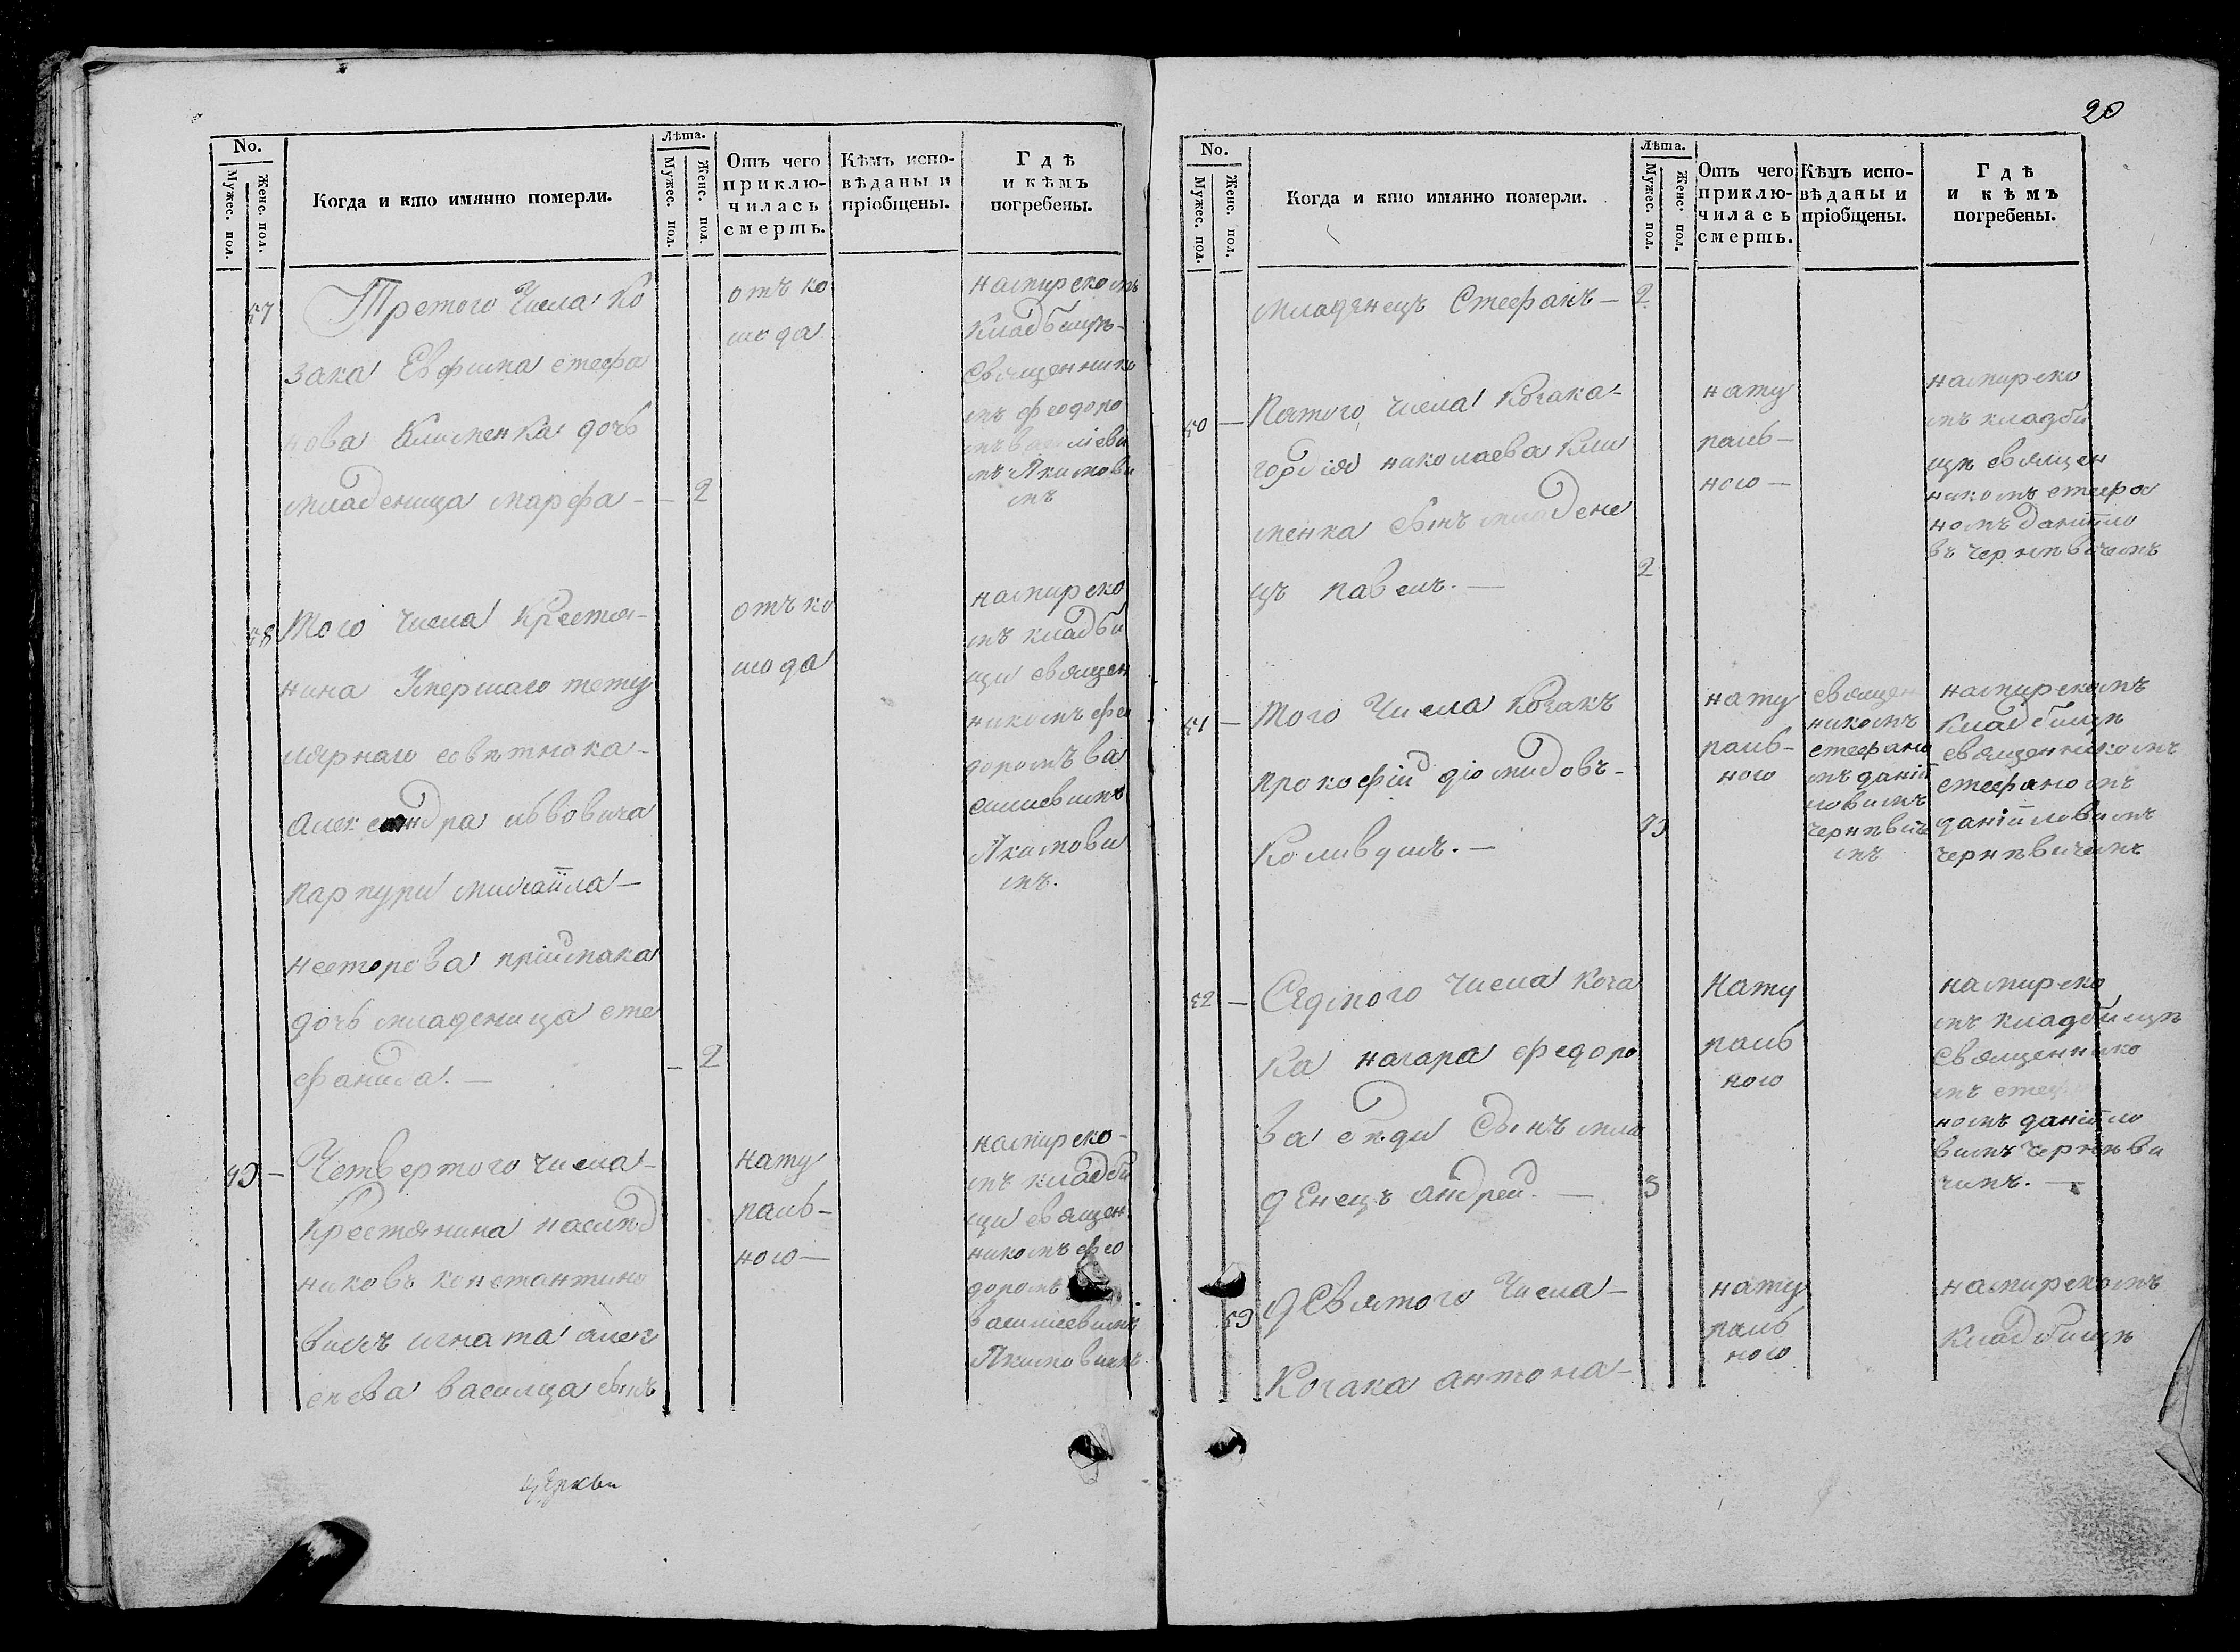 20
No.
Мужес. пол.
Женс. пол.
Когда и кто имянно померли.
Лѣта.
Мужес. пол.
Женс. пол.
Отъ чего
приклю-
чилась
смерть.
Кѣмъ испо-
вѣданы и
пріобщены.
Гдѣ
и кѣмъ
погребены.
Третого Числа Ко
зака Евфима стефа
нова Клименка дочь
младеница марфа - — 2
отъ ко
шода
намирскомъ
кладбищѣ-
Священнико
мъ феодоро
мъ василеви
мъ Якимови
мъ
Того числа Крестя-
нина Умершаго тету
лярнаго совѣтнока-
александра львовича
парпури михаила-
несторова пріймака
дочь младеница сте
фанида. — — 2
отъ ко
шода
намирско
мъ кладби
щи священ
никомъ фео
доромъ ва
силиевимъ
Якимови
мъ.
Четвертого числа-
Крестянина наслѣд
никовъ константино
вихъ игната алек
сѣева василца сынъ
нату
раль-
ного-
намирско-
мъ кладби
щи священ
никомъ фео
доромъ
василиевимъ
Якимовимъ
церкви
No.
Мужес. пол.
Женс. пол.
Когда и кто имянно померли.
Лѣта.
Мужес. пол.
Женс. пол.
Отъ чего
приклю-
чилась
смерть.
Кѣмъ испо-
вѣданы и
пріобщены.
Гдѣ
и кѣмъ
погребены.
младенецъ Стефанъ — 2
50 — Пятого числа Козака-
гордія николаева кли
менка сынъ младене
цъ павелъ. — 2
нату
раль-
ного-
намирско
мъ кладби
щѣ священ
никомъ стефа
номъ даниїло
въ чернѣвичемъ
51 — Того Числа Козакъ
прокофій діомидовъ-
нату
раль-
ного
священ
никомъ
стефано
мъ даніи
ловимъ
чернѣвиче
мъ
намирскомъ
Кладбищѣ
священникомъ
стефаномъ
даніиловимъ
чернѣвичемъ
52 — Седмого числа коза
ка назара федоро
ва сынъ мла
денецъ андрей. — 3
нату
раль
ного
намирско
мъ кладбищѣ
Священнико
мъ стеф
номъ даніило
вимъ чернѣви
чимъ. —
девятого Числа-
Козака антона-
нату
раль
ного
намирскомъ
Кладбищѣ